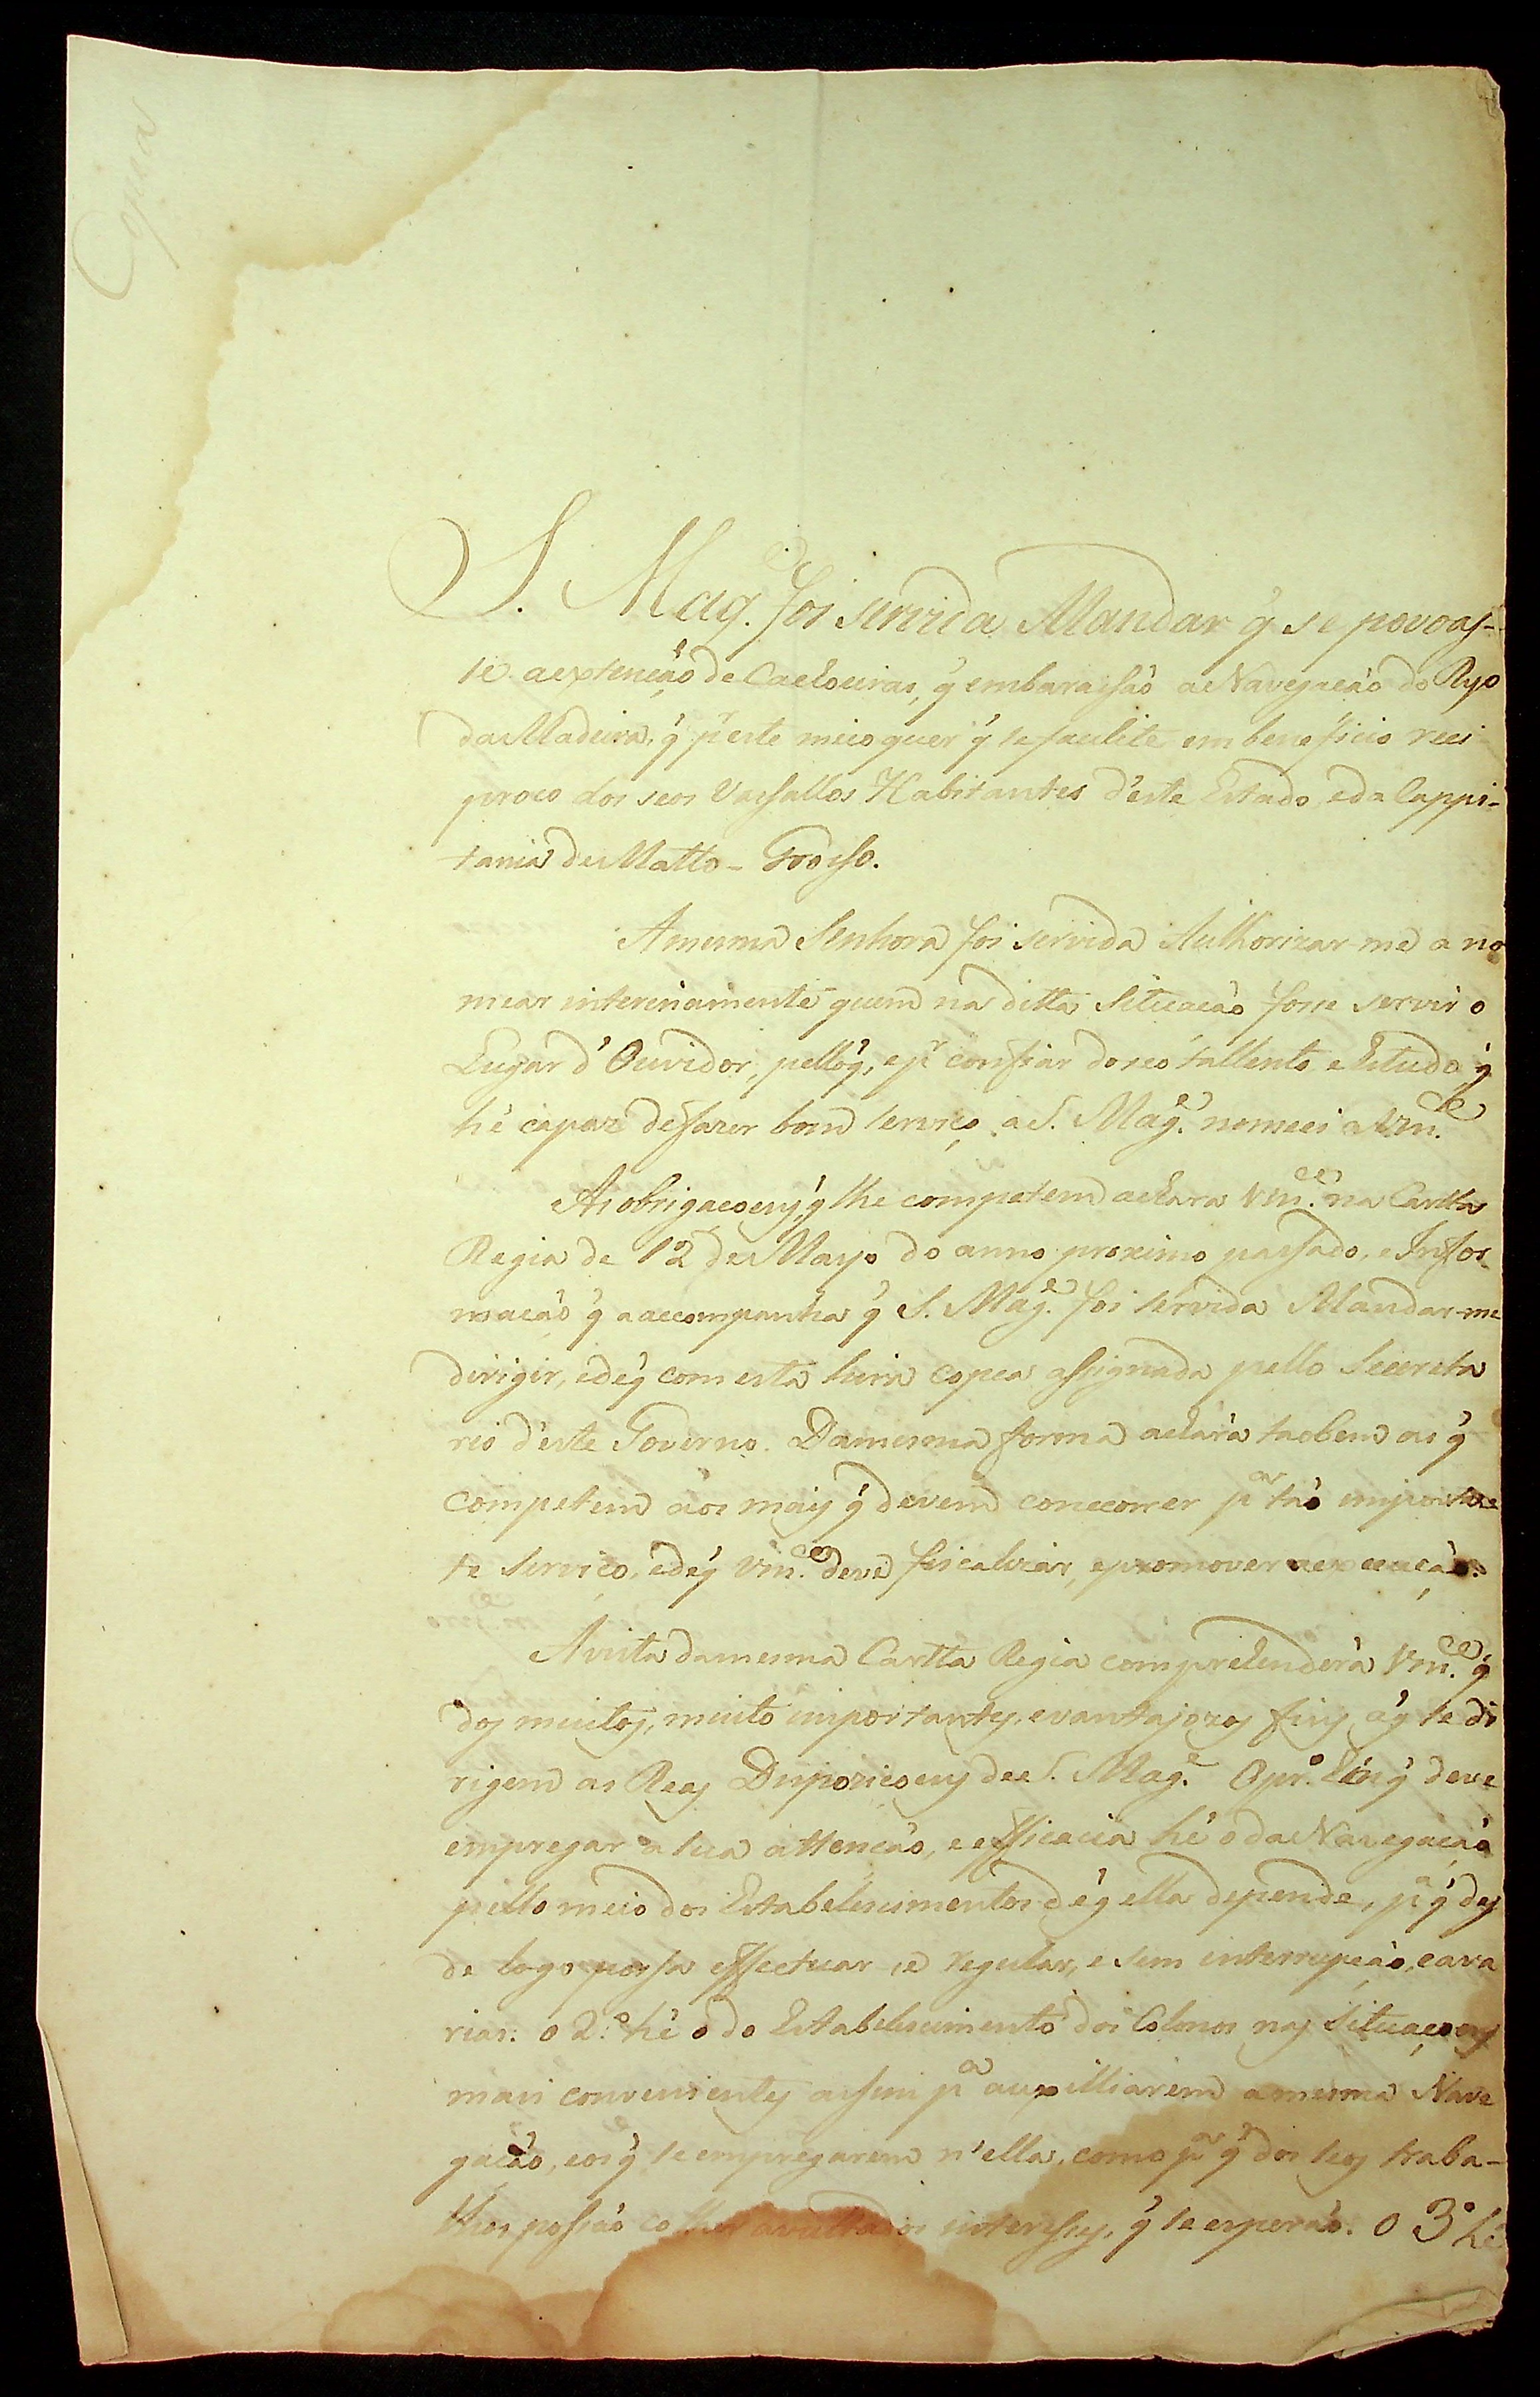 Copia
S. Mag.e foi servida Mandar q̃ se povoas-
se a extenção de Caxoeiras, q̃ embarassão a Navegação do Ryo
da Madeira, q̃ pr este meio quer q̃ se facilite em beneficio reci-
proco dos seos Vassallos Habitantes d'este Estado, e da Cappi-
tania de Matto-Grosso.
A mesma Senhora foi servida Authorizar-me a no
mear interinamente quem na ditta Situação fosse servir o
Lugar d'Ouvidor, pello q̃, e pr confiar do seo tallento, e Estudo q̃
hé capaz de fazer bom serviço a S. Mag.e nomeei a Vm.ce
As obrigaçoens, q̃ lhe competem achara Vm.ce na Cartta
Regia de 12 de Mayo do anno proximo passado, e Infor
mação q̃ a accompanha q̃ S. Mag.e foi servida Mandar-me
dirigir, e de q̃ com esta hirá copea assignada pello Secereta
rio d'este Governo. Da mesma forma achará tãobem as q̃
competem aos mais q̃ devem conccorrer pa tão importan
te Serviço, e de q̃ Vm.ce deve fiscalizar, e promover a execução.
A vista da mesma Cartta Regia comprehenderá Vm.ce q̃
dos muitos, muito importantes, e vantajozos fins, a q̃ se di
rigem as Reaes Dispoziçoens de S. Mag.e O pr.o em q̃ deve
empregar a sua attenção, e efficacia hé o da Navegação
pello meio dos Estabelescimentos de q̃ ella depende, pa q̃ des
de logo possa effectuar se regular, e sem interrupção, e ava
rias: o 2.o hé o do Estabelescimento dos Colonos nas Situaçoens
mais convenientes assim pa auxilliarem a mesma Nave
gação, e os q̃ se empregarem n'ella, como pa q̃ dos seos traba-
lhos possão colher avultados interesses, q̃ se esperão. o 3o hé